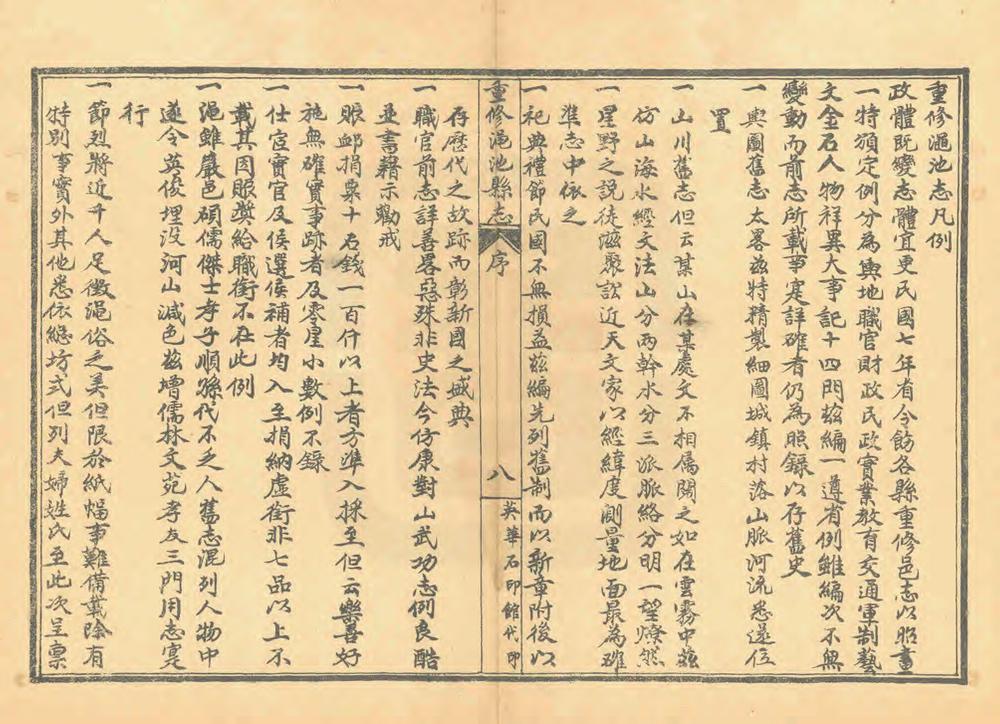 重修澠池志凡例
政體既變志體宜更民國七年省令飭各縣重修邑志以昭畫
一特頒定例分為輿地職官財政民政實業教育交通軍制藝
文金石人物祥異大事記十四門茲編一遵省例雖編次不無
變動而前志所載事寔詳確者仍為照錄以存舊史
一輿圖舊志太畧茲特精製細圖城鎮村落山脈河流悉遂位
置
一山川舊志但云某山在某處文不相属閱之如在雲霧中茲
仿山海水經文法山分兩幹水分三派脈絡分明一望燎然
一星野之說徒滋聚訟近天文家以經緯度測量地面最為確
準志中依之
一祀典禮節民國不無損益茲編先列舊制而以新章附後以
重修澠池縣志 序 八 英華石印館代印
存歷代之故跡而彰新國之盛典
一職官前志詳善畧惡殊非史法今仿康對山武功志例良酷
並書藉示勸戒
一賑卹捐粟十石錢一百仟以上者方準入採至但云樂善好
施無確實事跡者及零星小數例不錄
一仕宦實官及候選候補者均入至捐納虛銜非七品以上不
載其因賑獎給職銜不在此例
一澠雖巖邑碩儒傑士孝子順孫代不乏人舊志混列人物中
遂令英俊埋没河山減色茲增儒林文苑孝友三門用志寔
行
一節烈將近千人足徵澠俗之美但限於紙幅事難備載除有
特別事實外其他悉依總坊式但列夫婦姓氏至此次呈稟